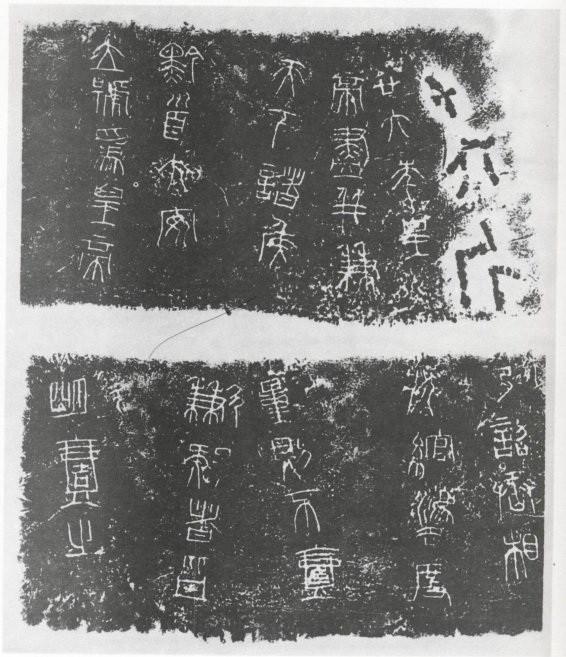 廿六年皇
帝盡并兼
天下諸侯
黔首大安
立號爲皇帝
乃詔丞相
狀綰灋度
量則不壹
歉疑者皆
明壹之